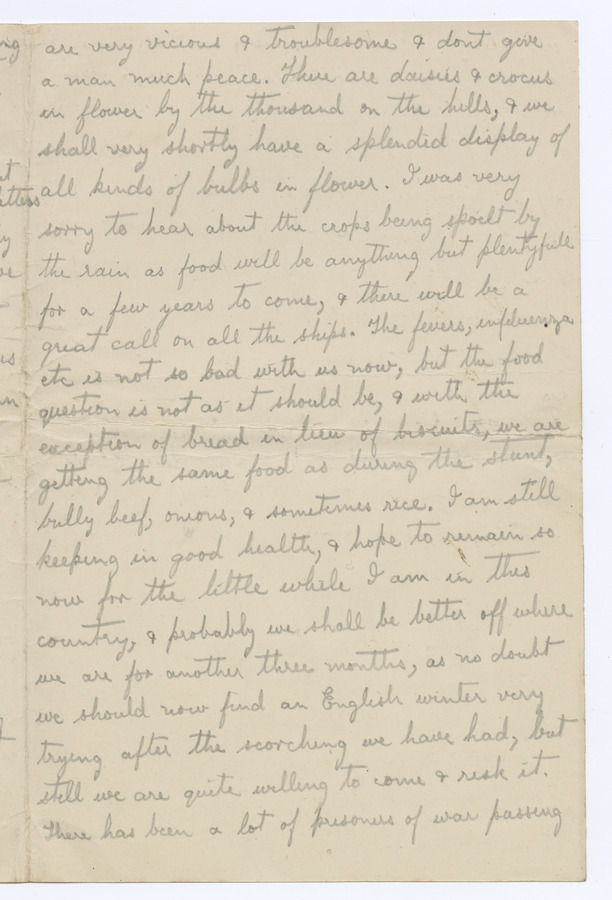 are very vicious & troublesome & dont give
a man much peace. There are daisies & crocus
in flower by the thousand on the hills, & we
shall very shortly have a splendid display of
all kinds of bulbs in flower. I was very
sorry to hear about the crops being spoilt by
the rain as food will be anything but plentyfull
for a few years to come, & there will be a
great call on all the ships. The fevers, influenza
etc is not so bad with us now, but the food
question is not as it should be, & with the
exception of bread in lieu of biscuits, we are
getting the same food as during the stunt,
bully beef, onions, & sometimes rice. I am still
keeping in good health, & hope to remain so
now for the little while I am in this
country, & probably we shall be better off where
we are for another three months, as no doubt
we should now find an English winter very
trying after the scorching we have had, but
still we are quite willing to come & risk it.
There has been a lot of prisoners of war passing